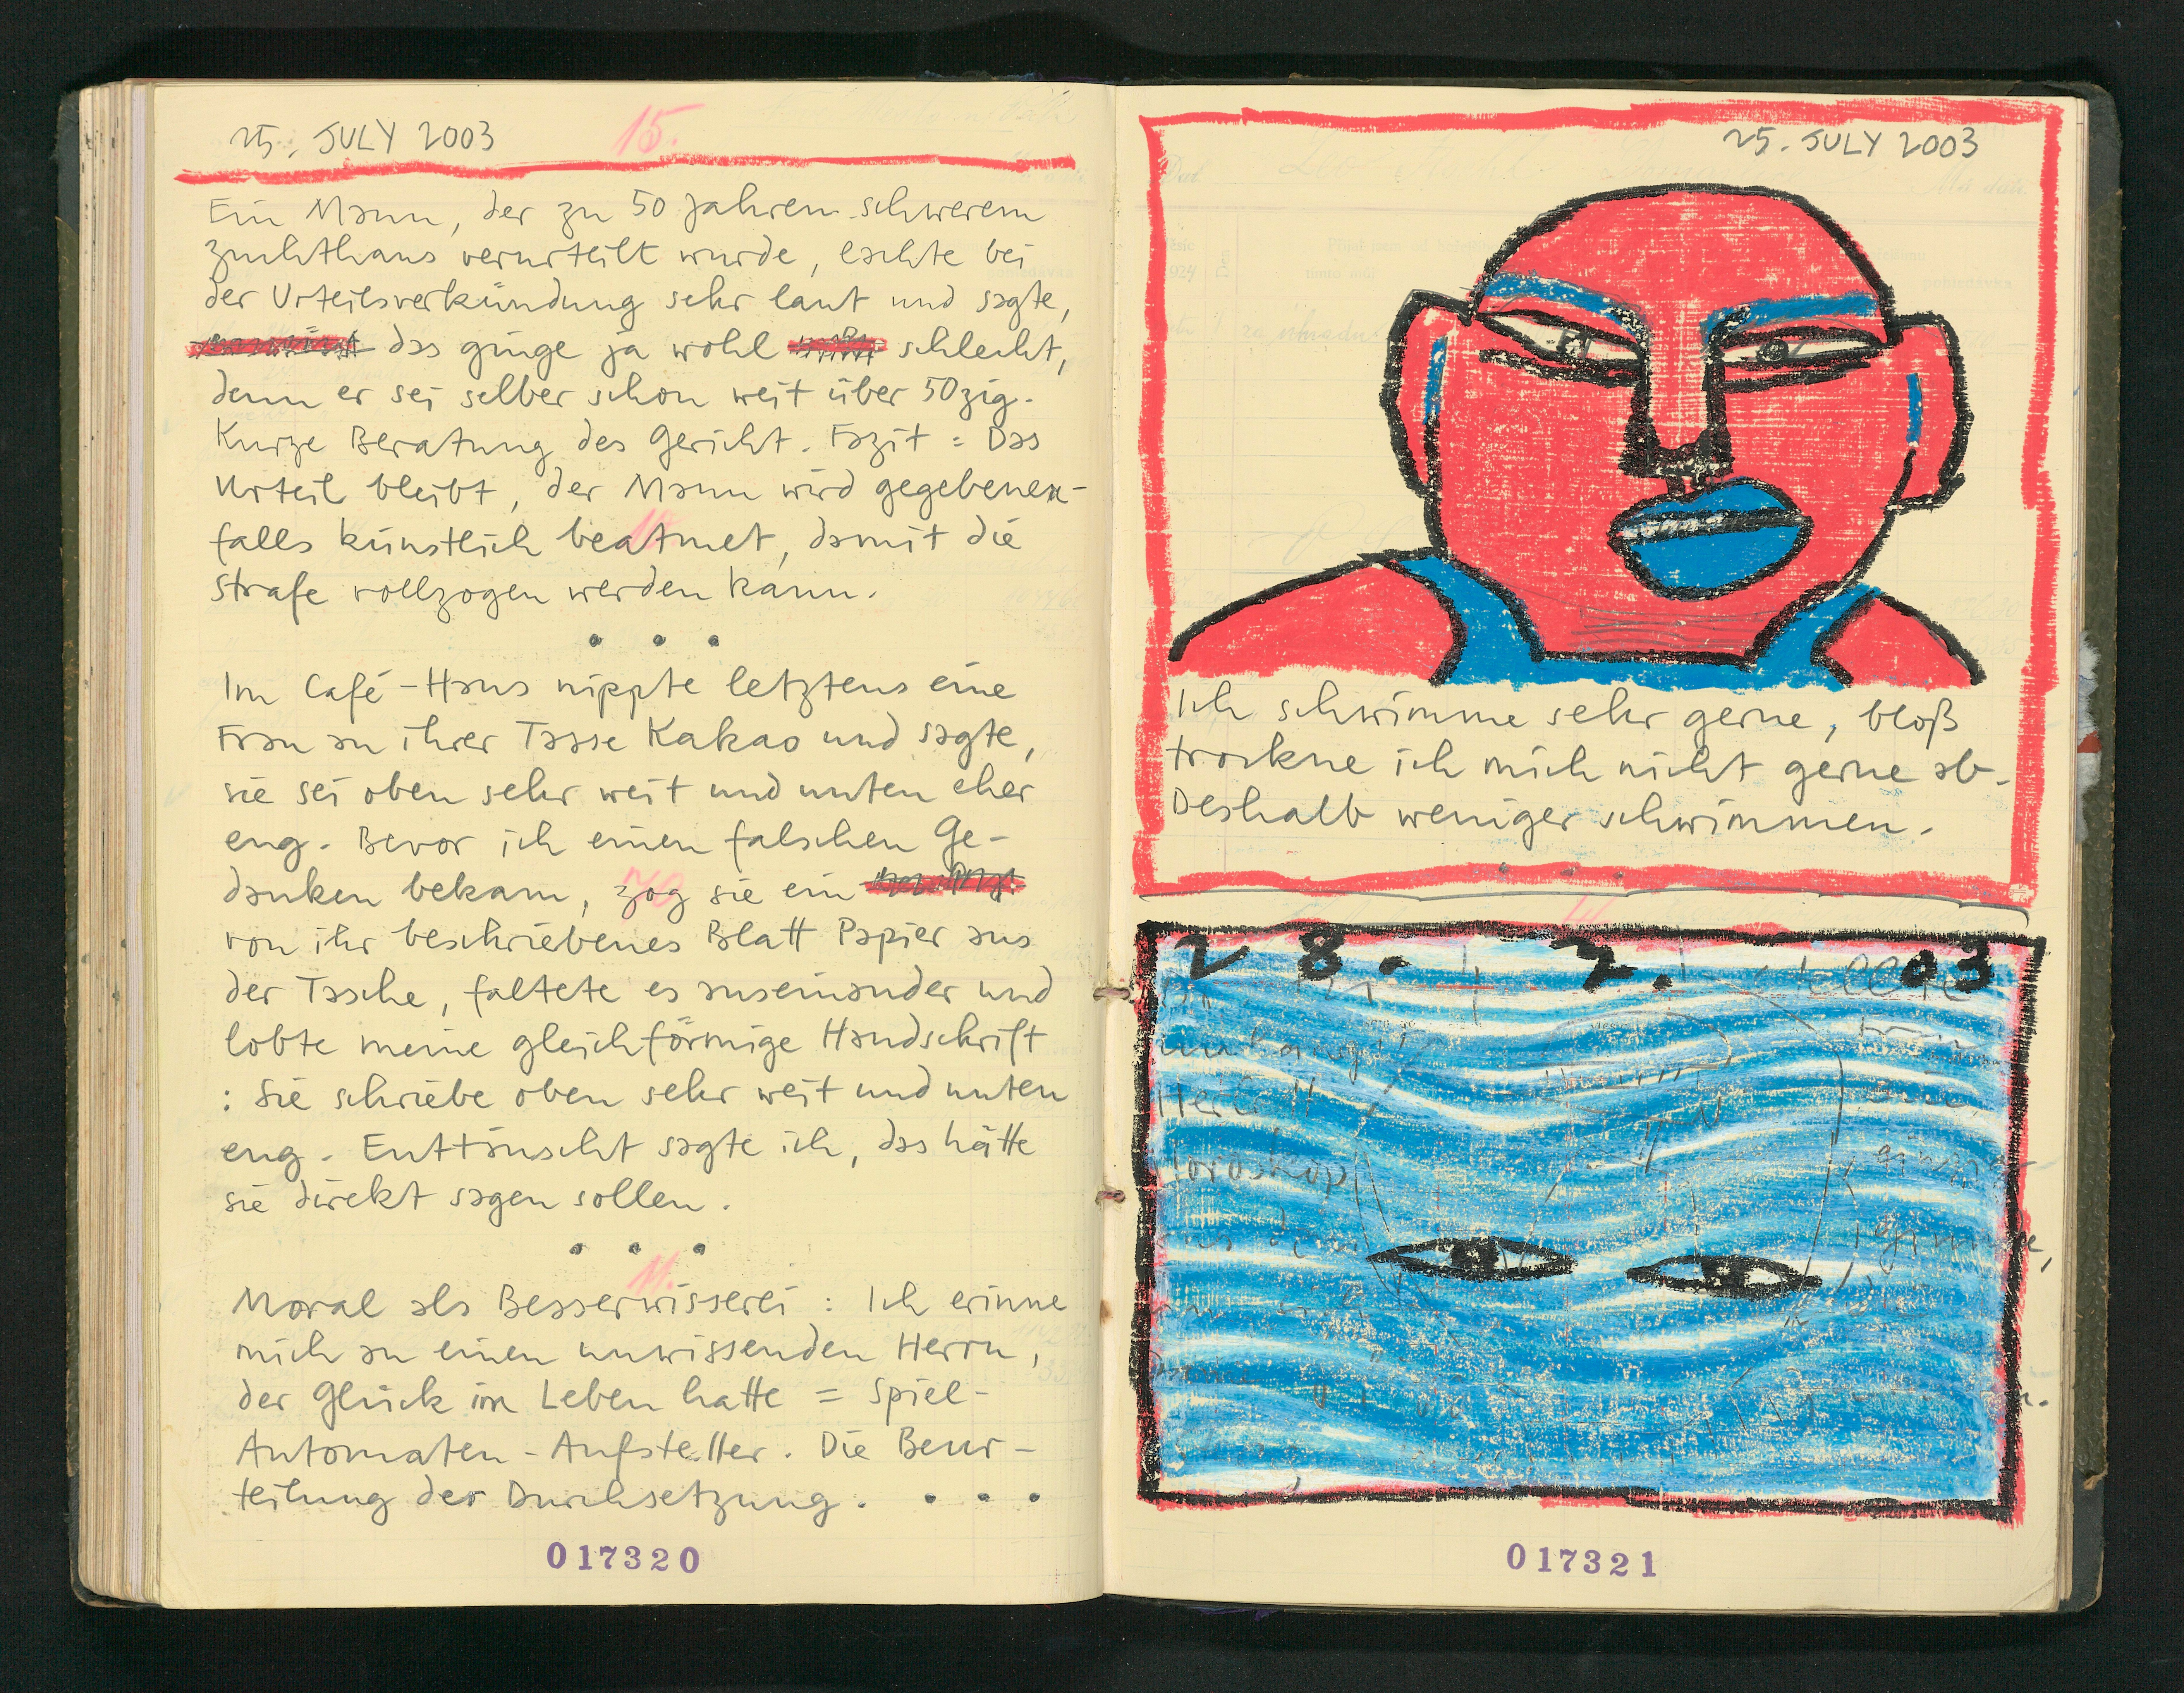 25. JULY 2003
15.
Ein Mann, der zu 50 Jahren schwerem
Zuchthaus verurteilt wurde, lachte bei
der Urteilsverkündung sehr laut und sagte,
das ginge ja wohl schlecht,
denn er sei selber schon weit über 50zig.
Kurze Beratung des Gericht. Fazit: Das
Urteil bleibt, der Mann wird gegebenen-
falls künstlich beatmet, damit die
Strafe vollzogen werden kann.
• • •
Im Café-Haus nippte letztens eine
Frau an ihrer Tasse Kakao und sagte,
sie sei oben sehr weit und unten eher
eng. Bevor ich einen falschen Ge-
danken bekam, zog sie ein
von ihr beschriebenes Blatt Papier aus
der Tasche, faltete es auseinander und
lobte meine gleichförmige Handschrift
: Sie schriebe oben sehr weit und unten
eng. Enttäuscht sagte ich, das hätte
sie direkt sagen sollen.
• • •
11.
Moral als Besserwisserei: Ich erinne
mich an einen unwissenden Herrn,
der Glück im Leben hatte = Spiel-
Automaten-Aufsteller. Die Beur-
teilung der Durchsetzung. • • •
017320
25. JULY 2003
Ich schwimme sehr gerne, bloß
trockne ich mich nicht gerne ab.
Deshalb weniger schwimmen.
• • •
28. 7. 03
Horoskop
017321